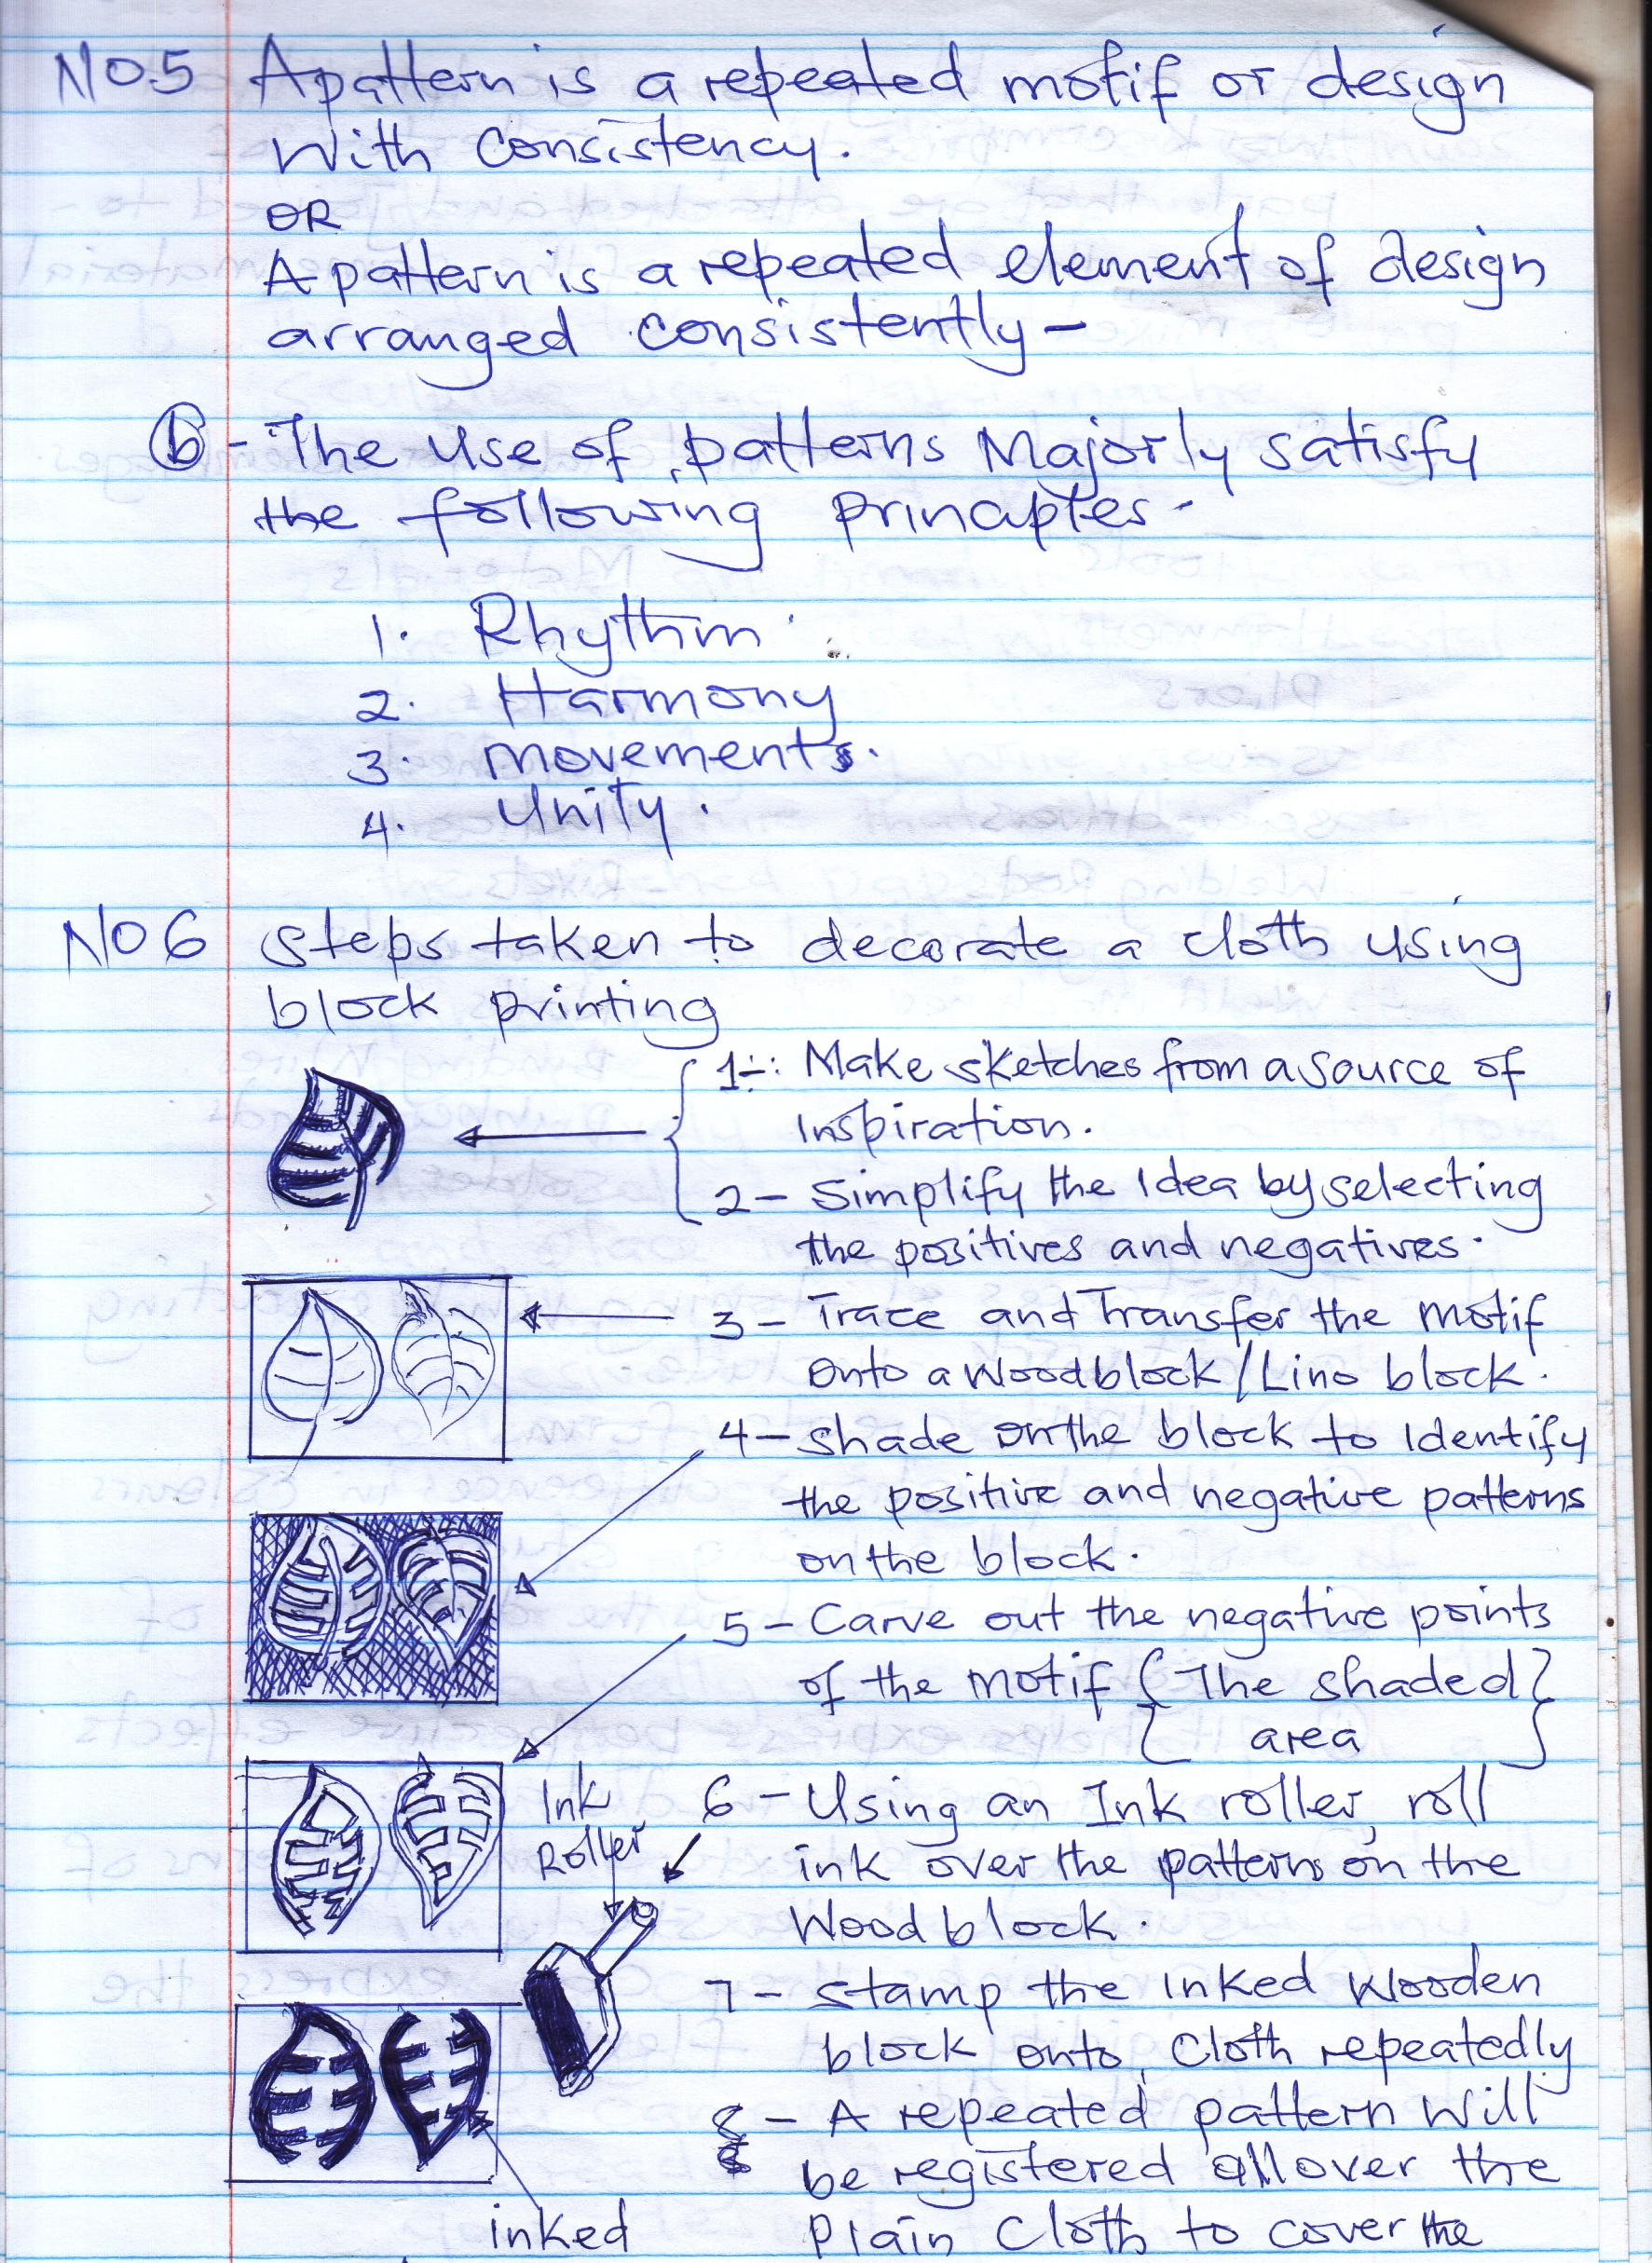 NO.5 A pattern is a repeated motif or design
with consistency.
OR
A pattern is a repeated element of design
arranged consistently -
(b) - The use of patterns Majorly satisfy
the following principles.
1. Rhythm
2. Harmony
3. movements.
4. Unity.
NO 6 steps taken to decorate a cloth using
block printing
1-: Make sketches from a source of
Inspiration.
2- Simplify the Idea by selecting
the positives and negatives.
3- Trace and Transfer the motif
onto a Woodblock/Lino block.
4- Shade on the block to Identify
the positive and negative patterns
on the block.
5- Carve out the negative points
of the motif { The shaded }
area
Ink
Roller
6- Using an Ink roller, roll
ink over the patterns on the
Wood block.
7- Stamp the inked wooden
block onto, cloth repeatedly
8- A repeated pattern will
be registered all over the
inked
Plain cloth to cover the